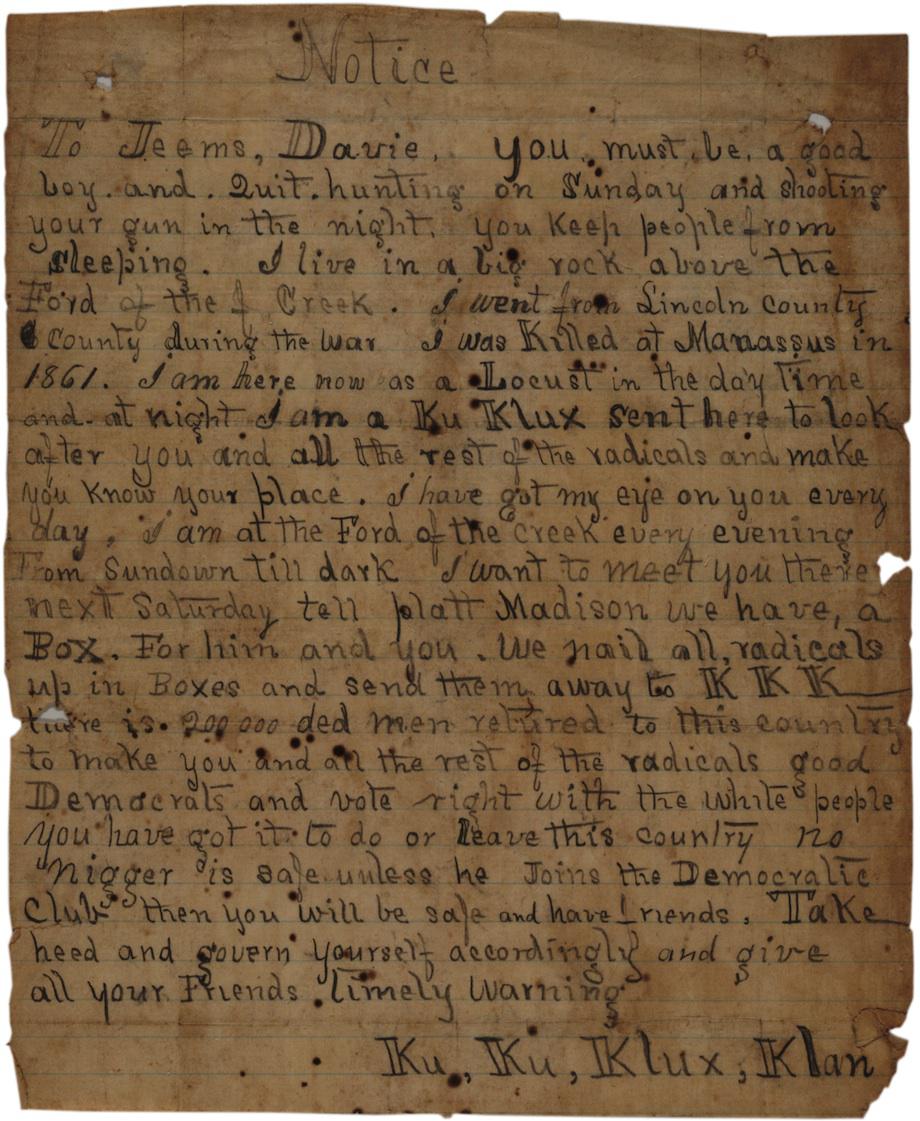 Notice
To Jeems, Davie. you. must, be. a good
boy. and. Quit. hunting on Sunday and shooting
your gun in the night. you keep people from
sleeping. I live in a big rock above the
Ford of the Creek. I went from Lincoln County
County during the war I was Killed at Manassus in
1861. I am here now as a Locust in the day Time
and. at night I am a Ku Klux sent here to look
after you and all the rest of the radicals and make
you know your place. I have got my eye on you every
day, I am at the Ford of the creek every evening
From Sundown till dark I want to meet you there
next Saturday tell platt Madison we have, a
Box. For him and you. We nail all, radicals
up in Boxes and send them away to KKK
there is. 200 000 ded men retured to this country
to make you and all the rest of the radicals good
Democrats and vote right with the white people
you have got it to do or leave this country no
nigger is safe unless he Joins the Democratic
Club then you will be safe and have friends. Take
heed and govern yourself accordingly and give
all your Friends timely warning
Ku, Ku, Klux, Klan